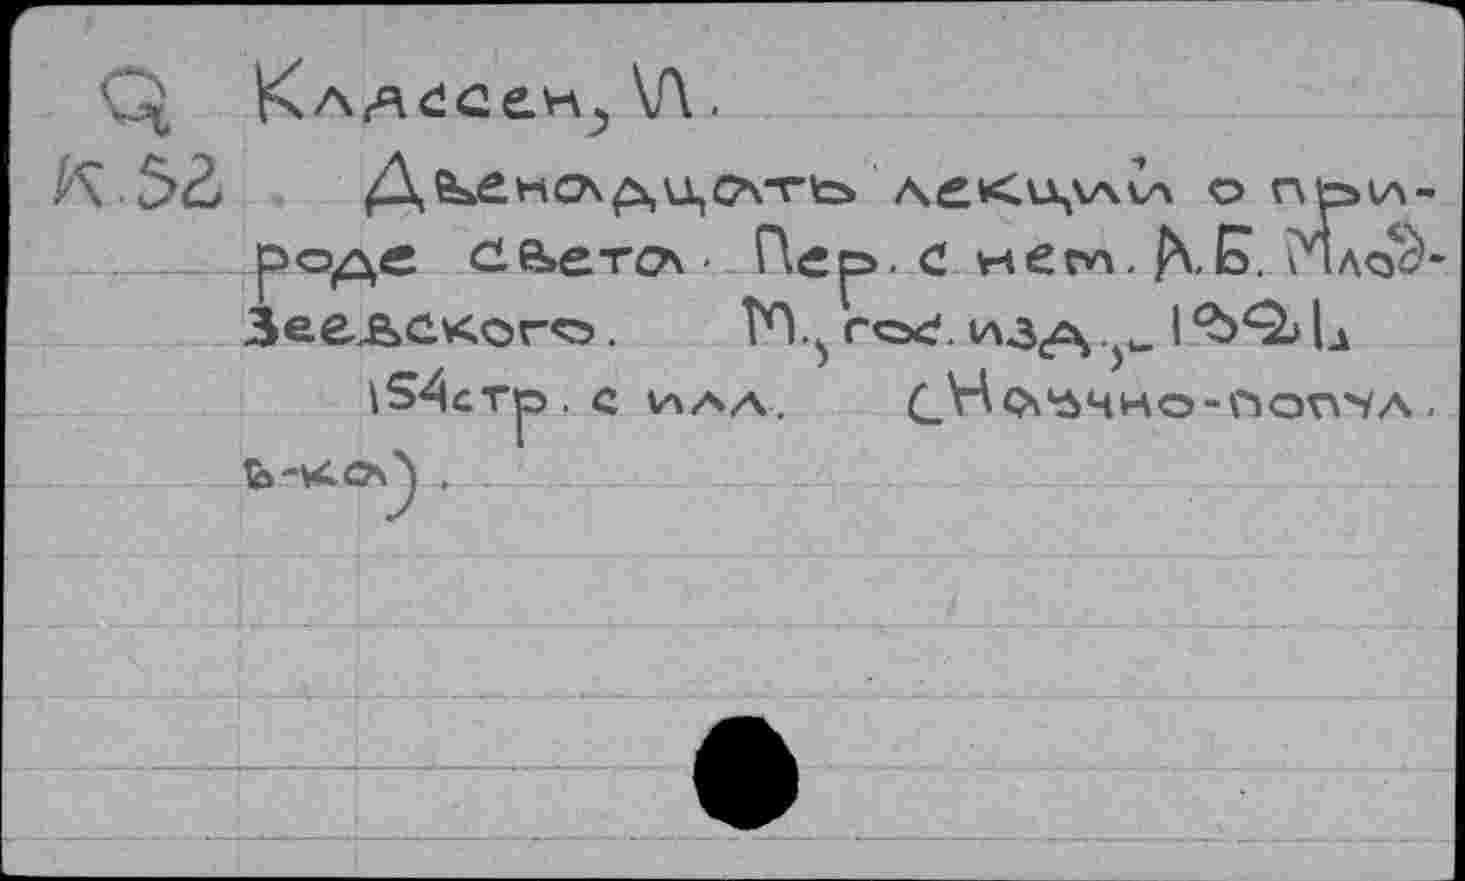 Q Классен, И.
К 52 Двенадцать лекций о при-
роде света. Пер. с нем. А.Б. Млод-
зеевского. М., гос. изд.,
154 стр. с илл. (Научно-попул.
б-ка).